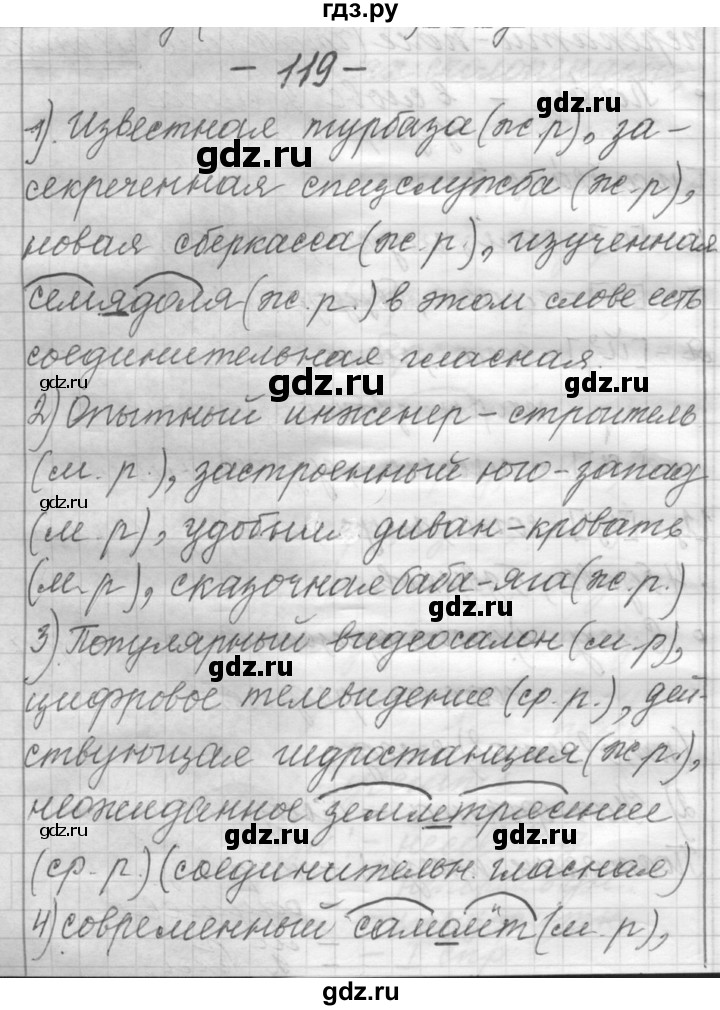 гдз.ру
- 119 -
gdz.ru
1). Известная турбаза (ж.р), за-
gdz.ru
секреченная спецслужба (ж.р),
новая сберкасса (ж.р.), изученная
семядоля (ж.р.) в этом слове есть
соединительная гласная
gdz.ru gdz.ru gdz.ru
2) Опытный инженер-строитель
(м.р.), застроенный юго-запад
gdz.ru
(м.р), удобный диван-кровать
(м.р), сказочная баба-яга (ж.р.)
gdz.ru
3). Популярный видеосалон (м.р),
gdz.ru
цифровое телевидение (ср.р.), дей-
ствующая гидростанция (ж.р.),
неожиданное землетрясение
gdz.ru gdz.ru gdz.ru
(ср.р.) (соединительн. гласная)
4) современный самолёт (м.р),
gdz.ru